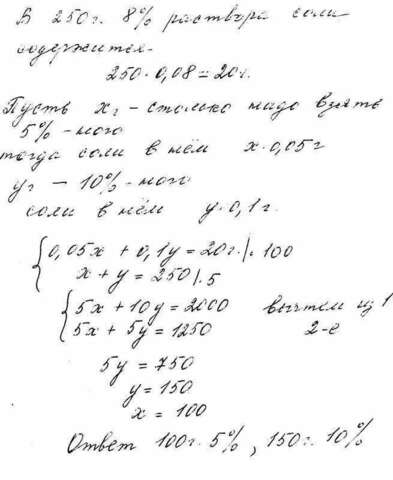 В 250г. 8% раствора соли
содержится.
250·0,08=20г.
Пусть хг – столько надо взять
5%-ного
тогда соли в нём х·0,05г
уг – 10%-ного
соли в нём у·0,1г.
0,05х + 0,1у = 20г. |·100
х + у = 250 |·5
5х + 10у = 2000 вычтем из 1
5х + 5у = 1250 2-е
5у = 750
у = 150
х = 100
Ответ 100г. 5%, 150г. 10%